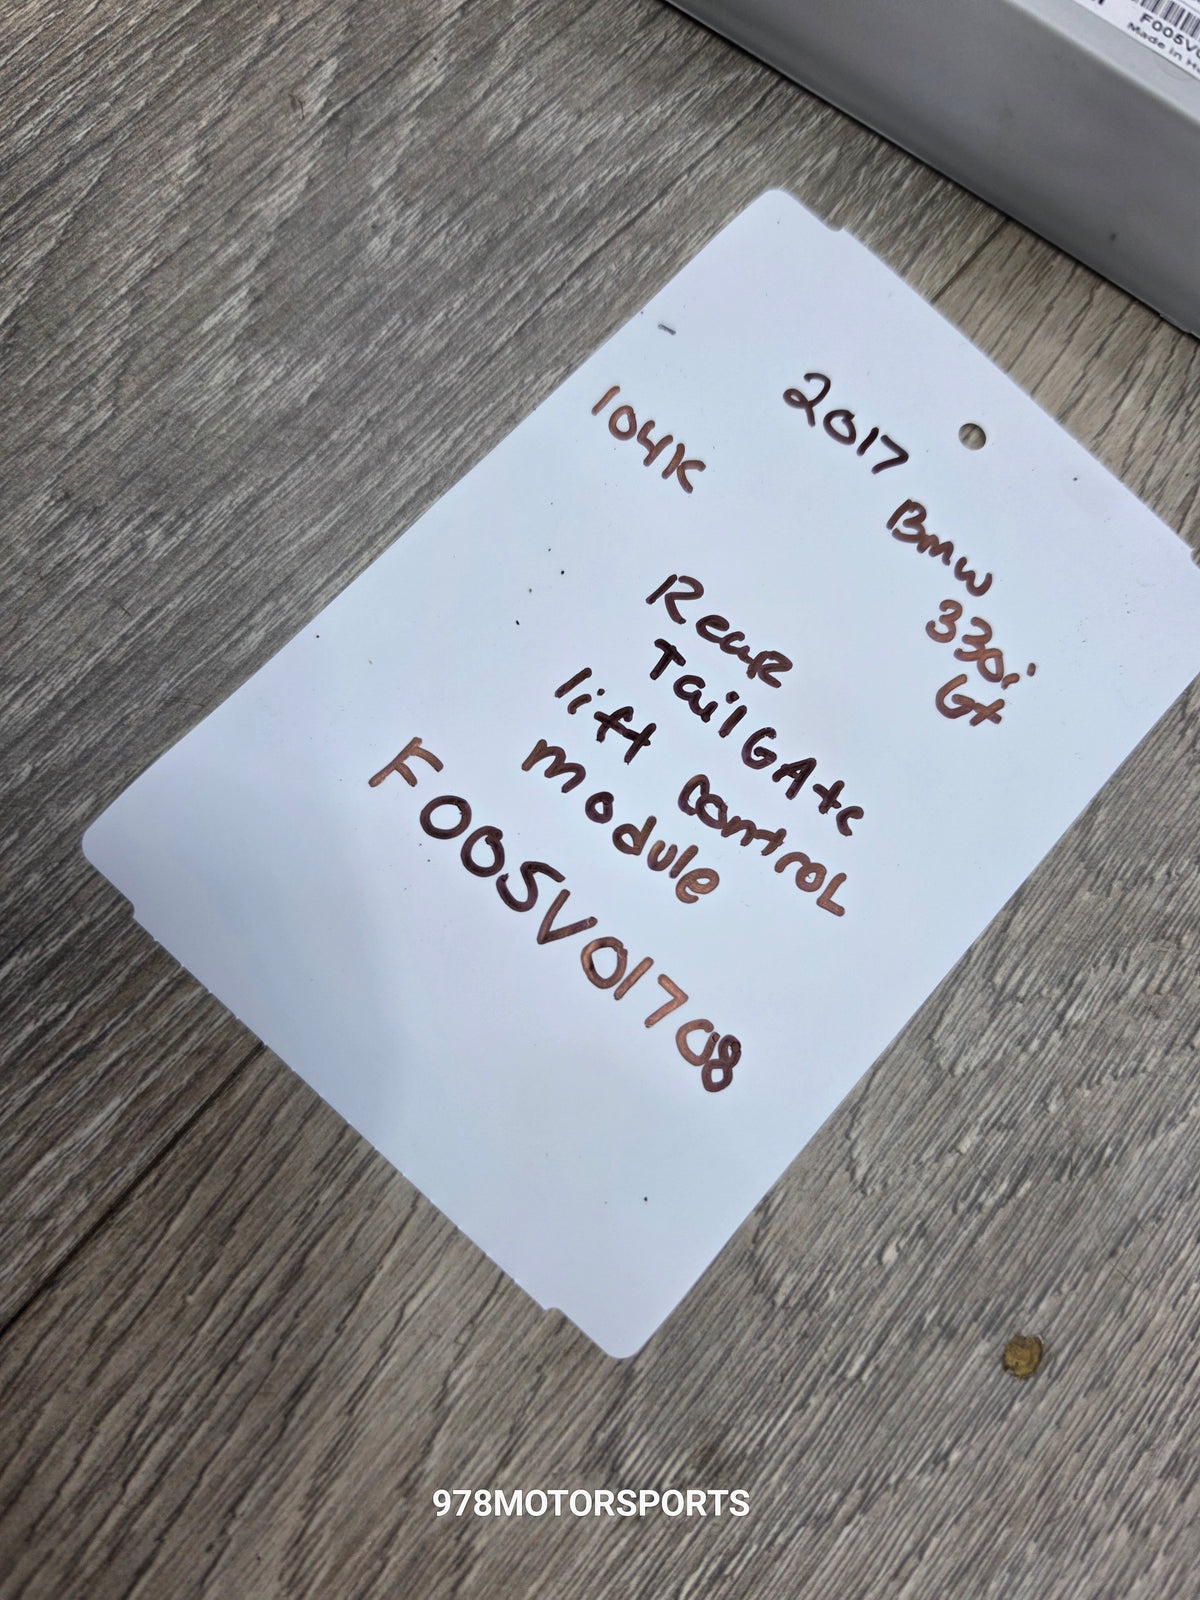 F005V0
Made in H
2017 Bmw
330i
Gt
104K
Rear
TailGAte
lift controL
module
F005V01708
978MOTORSPORTS